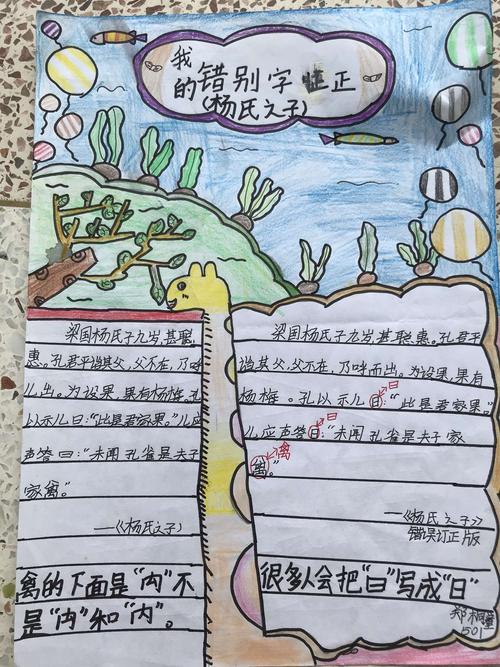 我
的错别字 纠正
(杨氏之子)
梁国杨氏子九岁,甚聪
惠。孔君平诣其父,父不在,乃呼
儿出。为设果,果有杨梅。孔
以示儿曰:“此是君家果。”儿应
声答曰:“未闻孔雀是夫子
家禽。”
——《杨氏之子》
禽的下面是“禸”不
是“内”和“内”。
梁国杨氏子九岁,甚聪惠。孔君平
诣其父,父不在,乃呼而出。为设果,果有
杨梅。孔以示儿日:“此是君家果。”
曰
儿应声答日:“未闻孔雀是夫子家
曰
禽。”
禽
——《杨氏之子》
错误订正版
很多人会把“曰”写成“日”
郑桐
501